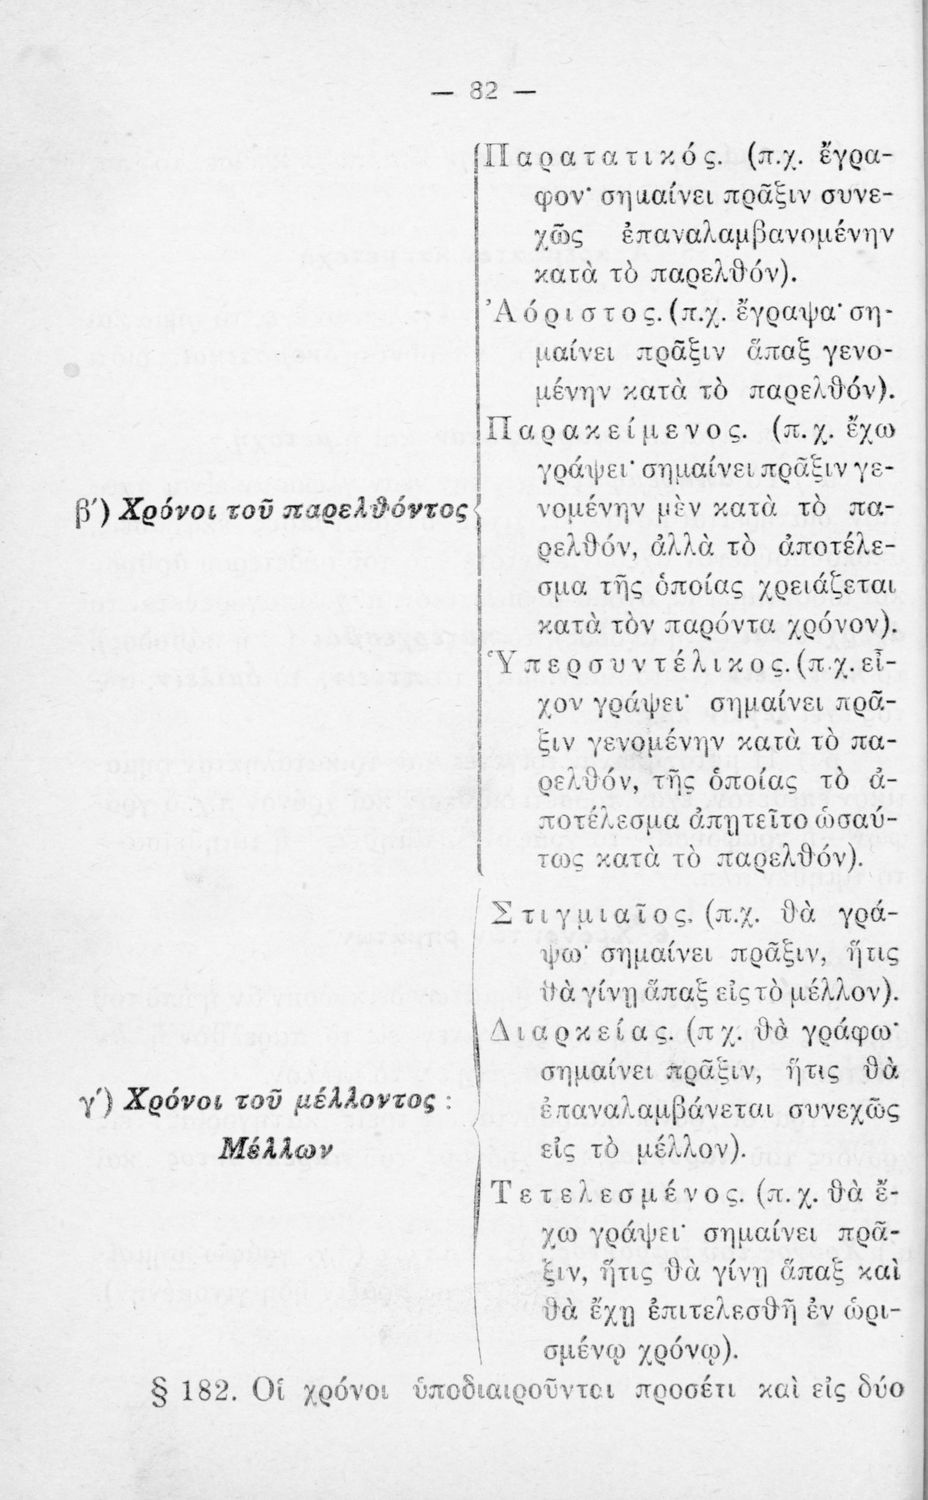 — 82 —
Παρατατικός. (π.χ. ἔγρα-
φον· σημαίνει πρᾶξιν συνε-
χῶς ἐπαναλαμβανομένην
κατὰ τὸ παρελθόν).
Ἀόριστος. (π.χ. ἔγραψα· ση-
μαίνει πρᾶξιν ἅπαξ γενο-
μένην κατὰ τὸ παρελθόν).
Παρακείμενος. (π.χ. ἔχω
γράψει· σημαίνει πρᾶξιν γε-
β΄) Χρόνοι τοῦ παρελθόντος
νομένην μὲν κατὰ τὸ πα-
ρελθόν, ἀλλὰ τὸ ἀποτέλε-
σμα τῆς ὁποίας χρειάζεται
κατὰ τὸν παρόντα χρόνον).
Ὑπερσυντέλικος. (π.χ. εἶ-
χον γράψει· σημαίνει πρᾶ-
ξιν γενομένην κατὰ τὸ πα-
ρελθόν, τῆς ὁποίας τὸ ἀ-
ποτέλεσμα ἀπῃτεῖτο ὡσαύ-
τως κατὰ τὸ παρελθόν).
Στιγμιαῖος, (π.χ. θὰ γρά-
ψω· σημαίνει πρᾶξιν, ἥτις
θὰ γίνῃ ἅπαξ εἰς τὸ μέλλον).
Διαρκείας. (π χ. θὰ γράφω·
σημαίνει πρᾶξιν, ἥτις θὰ
γ΄) Χρόνοι τοῦ μέλλοντος :
Μέλλων
ἐπαναλαμβάνεται συνεχῶς
εἰς τὸ μέλλον).
Τετελεσμένος. (π.χ. θὰ ἔ-
χω γράψει· σημαίνει πρᾶ-
ξιν, ἥτις θὰ γίνῃ ἅπαξ καὶ
θὰ ἔχῃ ἐπιτελεσθῆ ἐν ὡρι-
σμένῳ χρόνῳ).
§ 182. Οἱ χρόνοι ὑποδιαιροῦνται προσέτι καὶ εἰς δύο